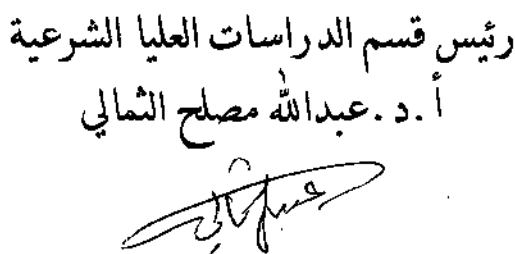 رئيس قسم الدراسات العليا الشرعية
أ.د.عبدالله مصلح الثمالي